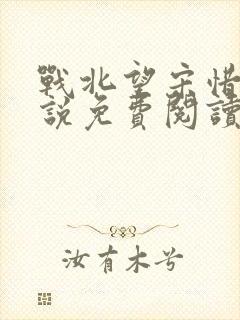 戰北望宋惜
說免費閱讀
汝有木兮